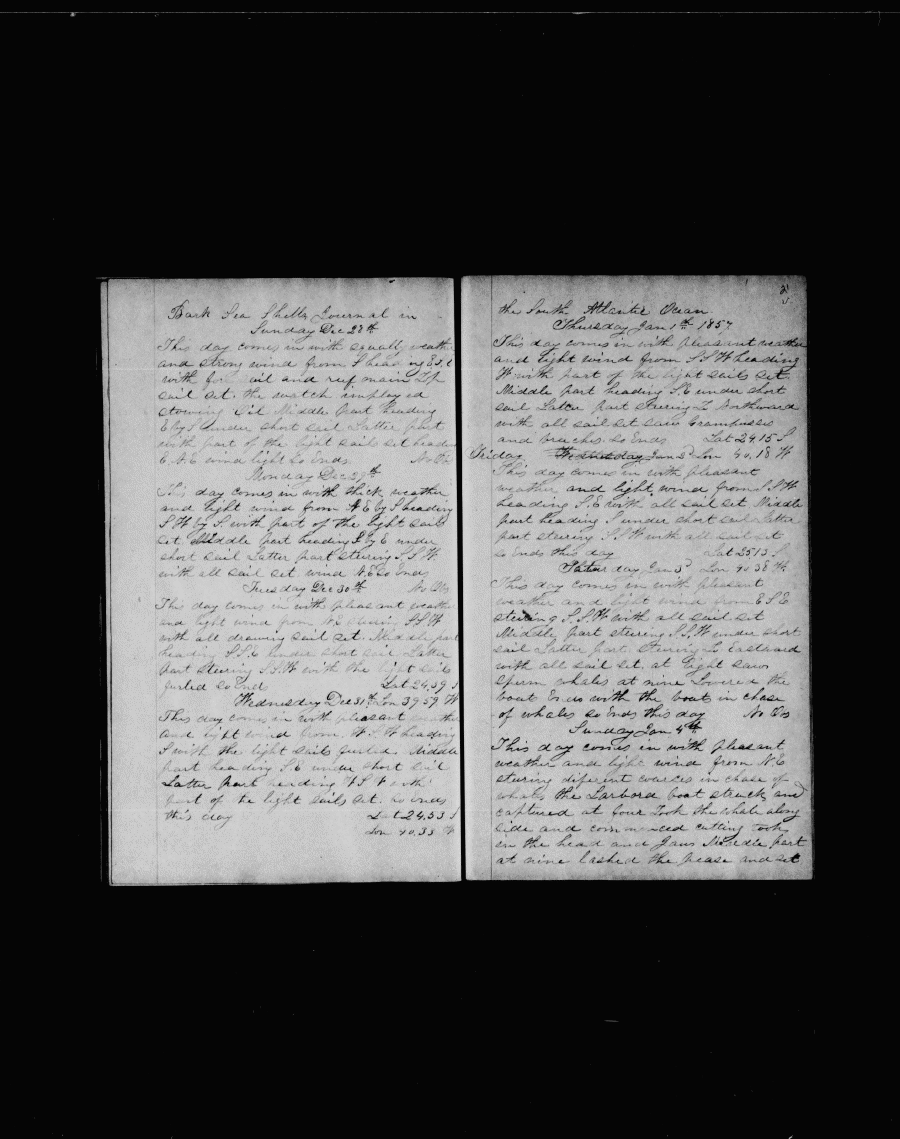 Bark Sea Shells Journal in
Sunday Dec 28th
This day comes in with squally weather
and strong wind from S heading E.S.E
with for sail and reef main Top
sail set. the watch imployed
stowing Oil Middle part heading
E by S under short sail Latter part
with part of the light sail set heading
E.N.E wind light So Ends No Obs
Monday Dec 29th
This day comes in with thick weather
and light wind from N E by S heading
S W by S. with part of the light sails
set Middle part heading E by E under
short sail Latter part steering S.S.W.
with all sail set wind N.E So Ends
Tuesday Dec 30th No Obs
This day comes in with pleasant weather
and light wind from N.E steering S.S.W
with all drawing sail set. Middle part
heading S.S.E under short sail Latter
part steering S.S.W with the light sails
furled So Ends Lat 24.39 S
Wednesday Dec 31th Lon 39 59 W
This day comes in with pleasant weather
and light wind from W.S.W heading
S with the light sails furled. Middle
part heading S.E under short sail
Latter part heading W S W with
part of the light sails set. So Ends
this day Lat 24.53 S
Lon 40.33 W
2
the South Atlantic Ocean
Thursday Jan 1th 1857
This day comes in with pleasant weather
and light wind from S S W heading
W with part of the light sails set
Middle part heading S.E under short
sail Latter part steering To Northward
with all sail set saw Grampusses
and breaches So Ends Lat 24 15 S
Friday Wednesday Jan 2d Lon 40.18 W
This day comes in with pleasant
weather and light wind from S.S.W
heading S.E with all sail set Middle
part heading S under short sail Latter
part steering S.S.W with all sail set
So Ends this day Lat 25 13 S
Saturday Jan 3d Lon 40 38 W
This day comes in with pleasant
weather and light wind from E S E
steering S.S.W with all sail set
Middle part steering S.S.W under short
sail Latter part. Steering To Eastward
with all sail set, at Eight saw
sperm whales at nine Lowered the
boat Ends with the boats in chase
of whales So Ends this day No Obs
Sunday Jan 4th
This day comes in with pleasant
weather and light wind from N.E
stering diferent cources in chase of
whals the Larbord boat struck and
captured at four Took the whale along
side and commenced cutting took
in the head and Jaws Middle part
at nine lashed the pease and set